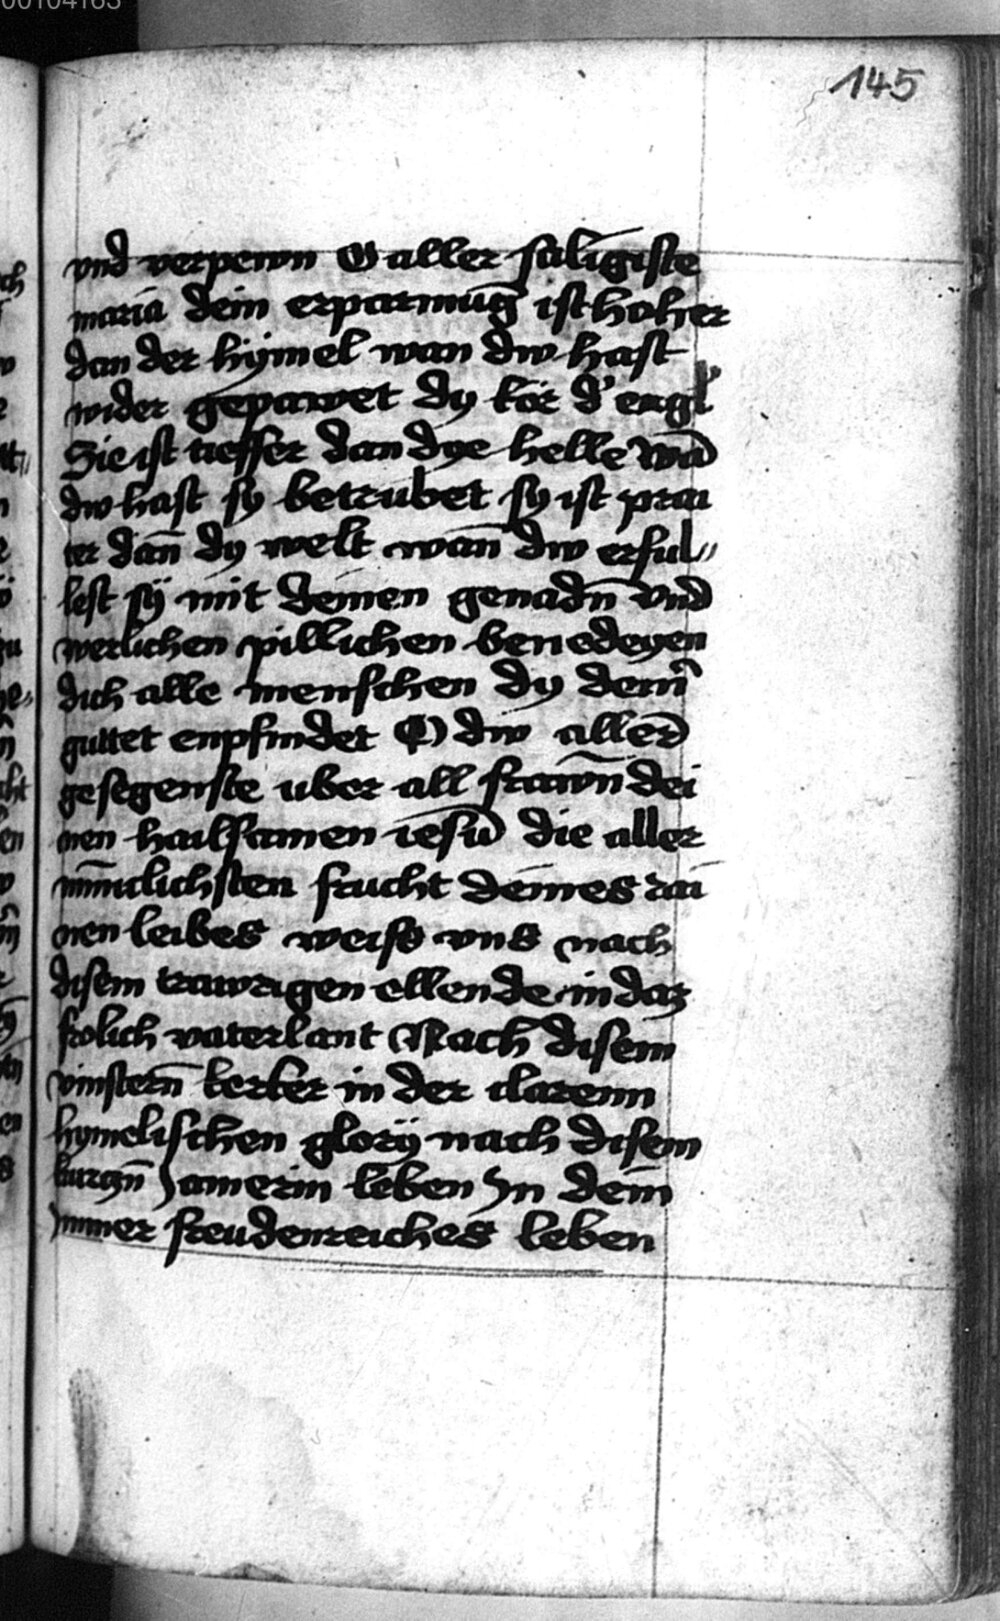 145
vnd verpewn O aller säligiste
maria dein erparmūg ist hoher
dan der hÿmel wan dw hast
wider gepawet dy kör d' engl
Sie ist tieffer dan dye helle wā
dw hast sy betrubet sy ist prai
ter dan̄ dy welt wan̄ dw erful„
lest sÿ mit deinen genadn̄ vnd
werlichen pillichen benedeyen
dich alle menschen dy dein'
guttet enpfindet O dw allerˉ
gesegenste uber all frawn̄ dei
nen hailsamen iesū die aller
mīniclichsten frucht deines rai
nen leibes weiss vns nach
disem trawrigen ellende in daz
frolich vaterlant Nach disem
vinstern̄ kerker in der clarenn
hymelischen glorÿ nach disem
kurczn̄ Jamerin leben Jn dein̄
Jmmer freudenreiches leben